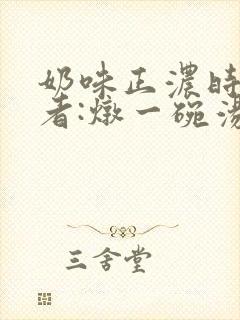 奶味正濃時
者:燉一碗湯
三舍堂